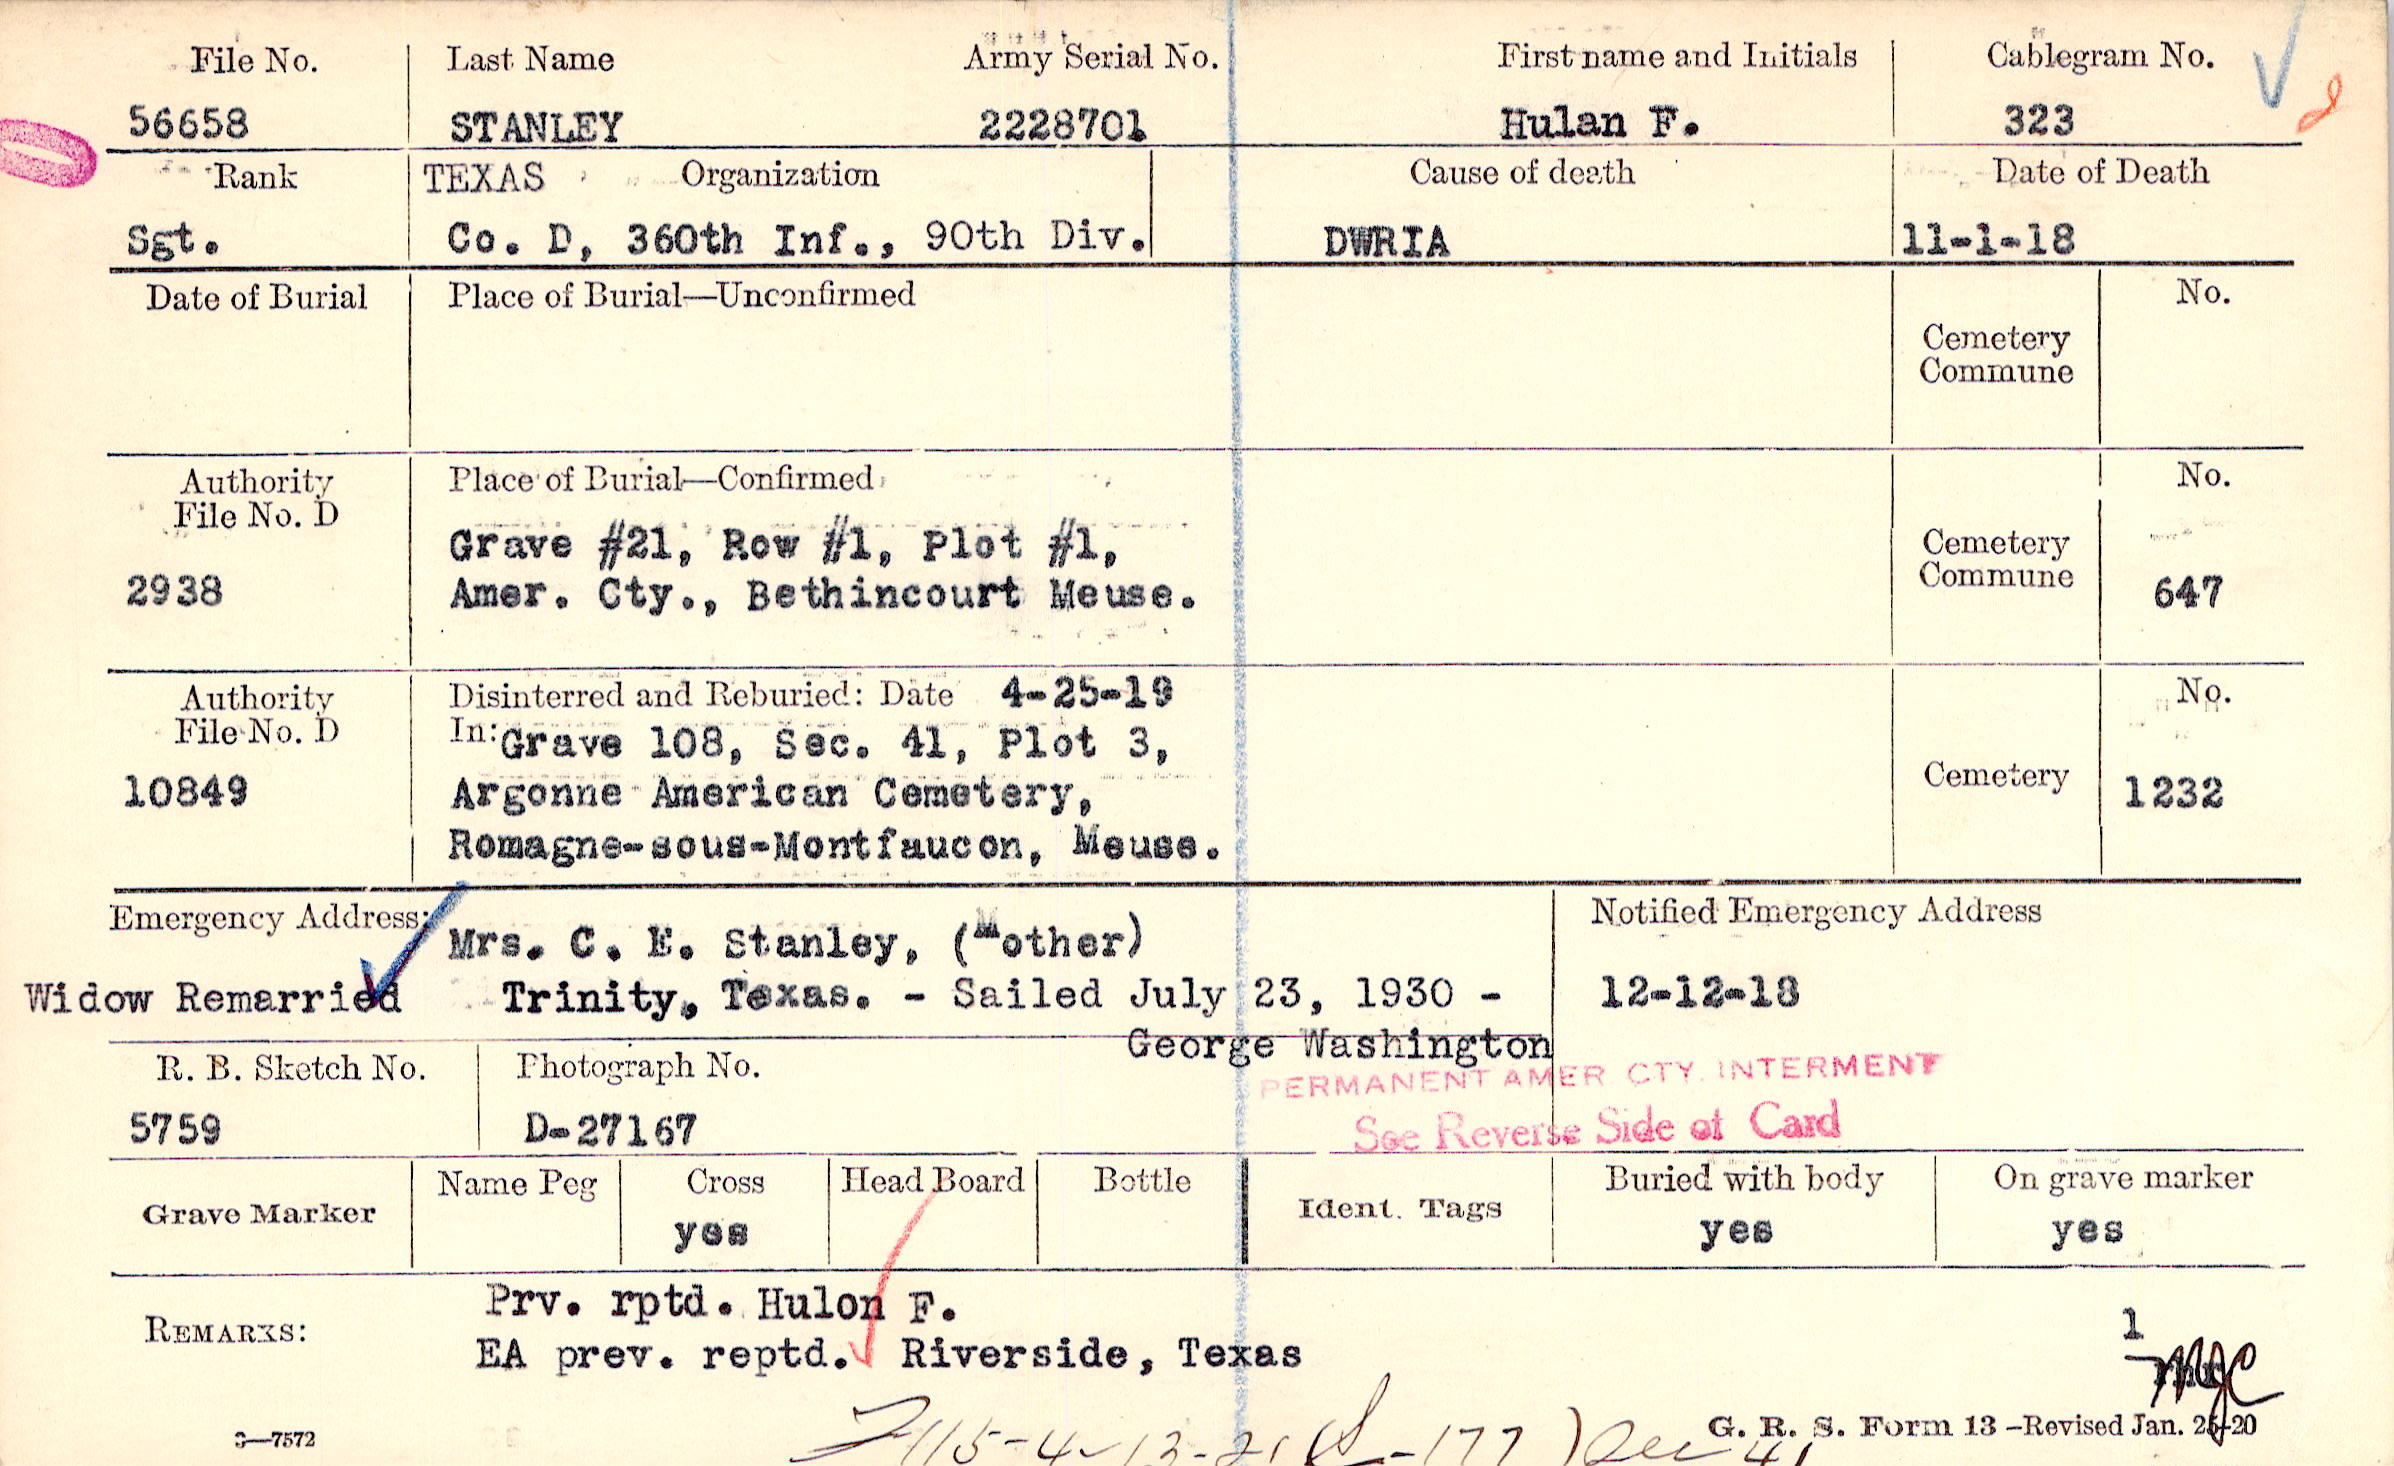 File No. Last Name Army Serial No. First name and Initials Cablegram No.
56658 STANLEY 2228701 Hulan F. 323
Rank TEXAS Organization Cause of death Date of Death
Sgt. Co. D, 360th Inf., 90th Div. DWRIA 11-1-18
Date of Burial Place of Burial—Unconfirmed No.
Cemetery
Commune
Authority Place of Burial—Confirmed No.
File No. D
Grave #21, Row #1, Plot #1, Cemetery
2938 Amer. Cty., Bethincourt Meuse. Commune 647
Authority Disinterred and Reburied: Date 4-25-19 No.
File No. D In: Grave 108, Sec. 41, Plot 3,
10849 Argonne American Cemetery, Cemetery 1232
Romagne-sous-Montfaucon, Meuse.
Emergency Address: Mrs. C. E. Stanley, (Mother) Notified Emergency Address
Widow Remarried Trinity, Texas. - Sailed July 23, 1930 - 12-12-18
George Washington
R. B. Sketch No. Photograph No. PERMANENT AMER CTY. INTERMENT
5759 D-27167 See Reverse Side of Card
Grave Marker Name Peg Cross Head Board Bottle Ident. Tags Buried with body On grave marker
yes yes yes
REMARKS: Prv. rptd. Hulon F. 1
EA prev. reptd. Riverside, Texas
3—7572 G. R. S. Form 13 -Revised Jan. 25-20